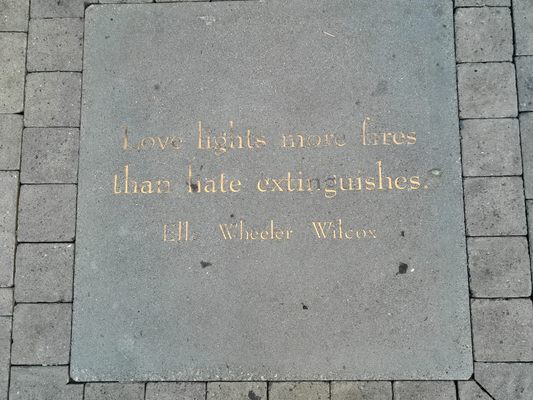 Love lights more fires
than hate extinguishes.
Ella Wheeler Wilcox